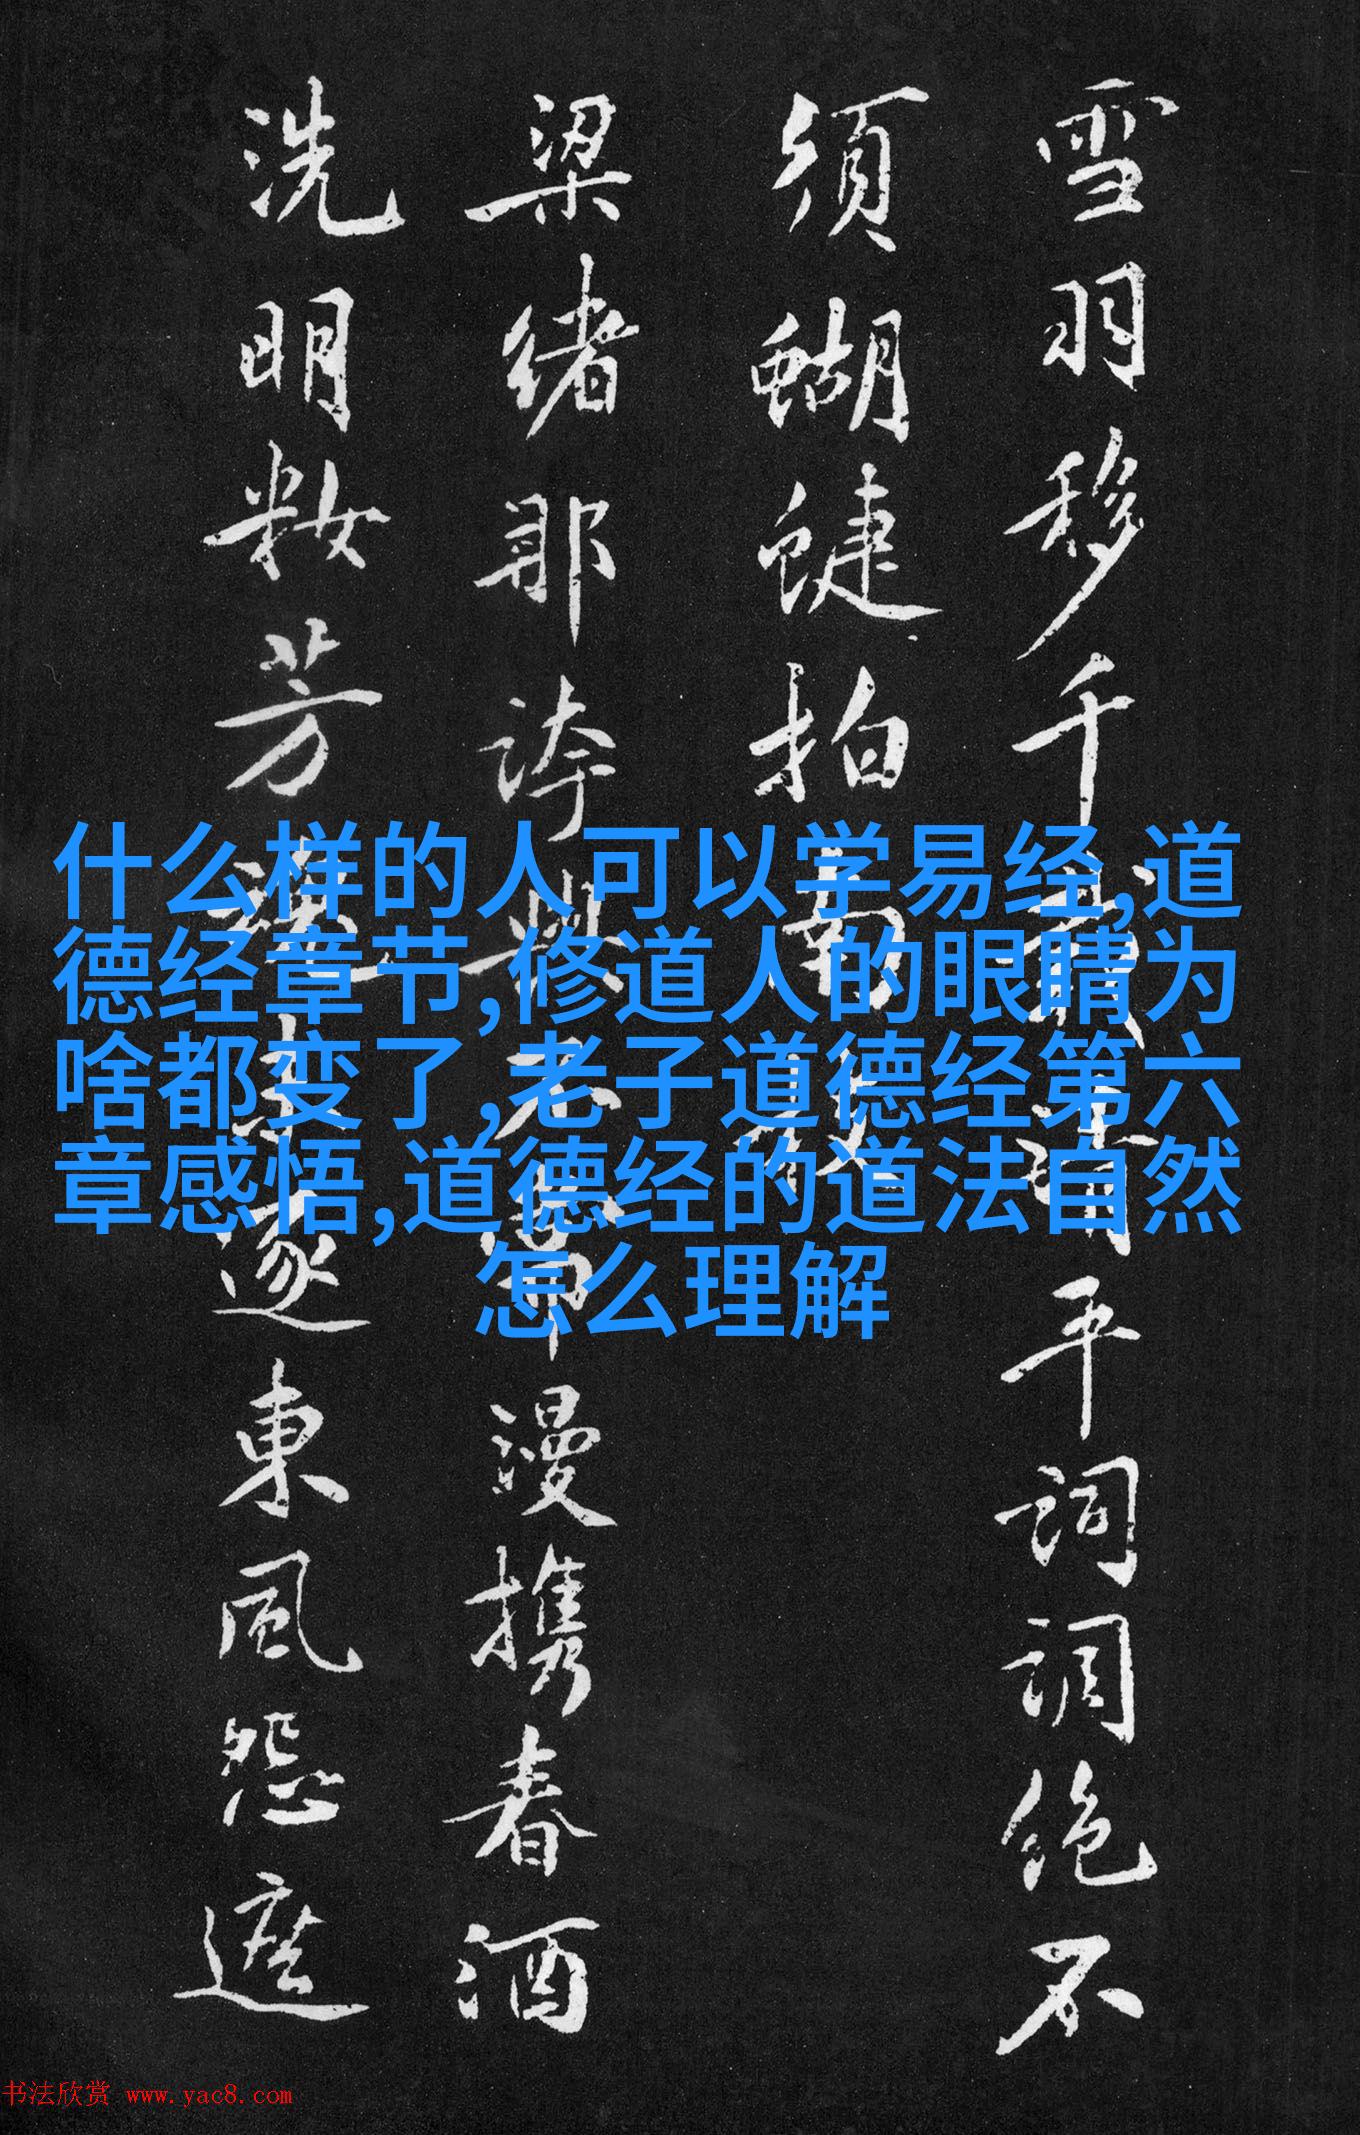 雪羽移千清平詞調绝不
須蝴蜨拍南
梁緒那誇與帚漫携春酒
洗明妝芳逐東風怨遮
什么样的人可以学易经,道
德经章节,修道人的眼睛为
啥都变了,老子道德经第六
章感悟,道德经的道法自然
怎么理解
书法欣赏 www.yac8.com